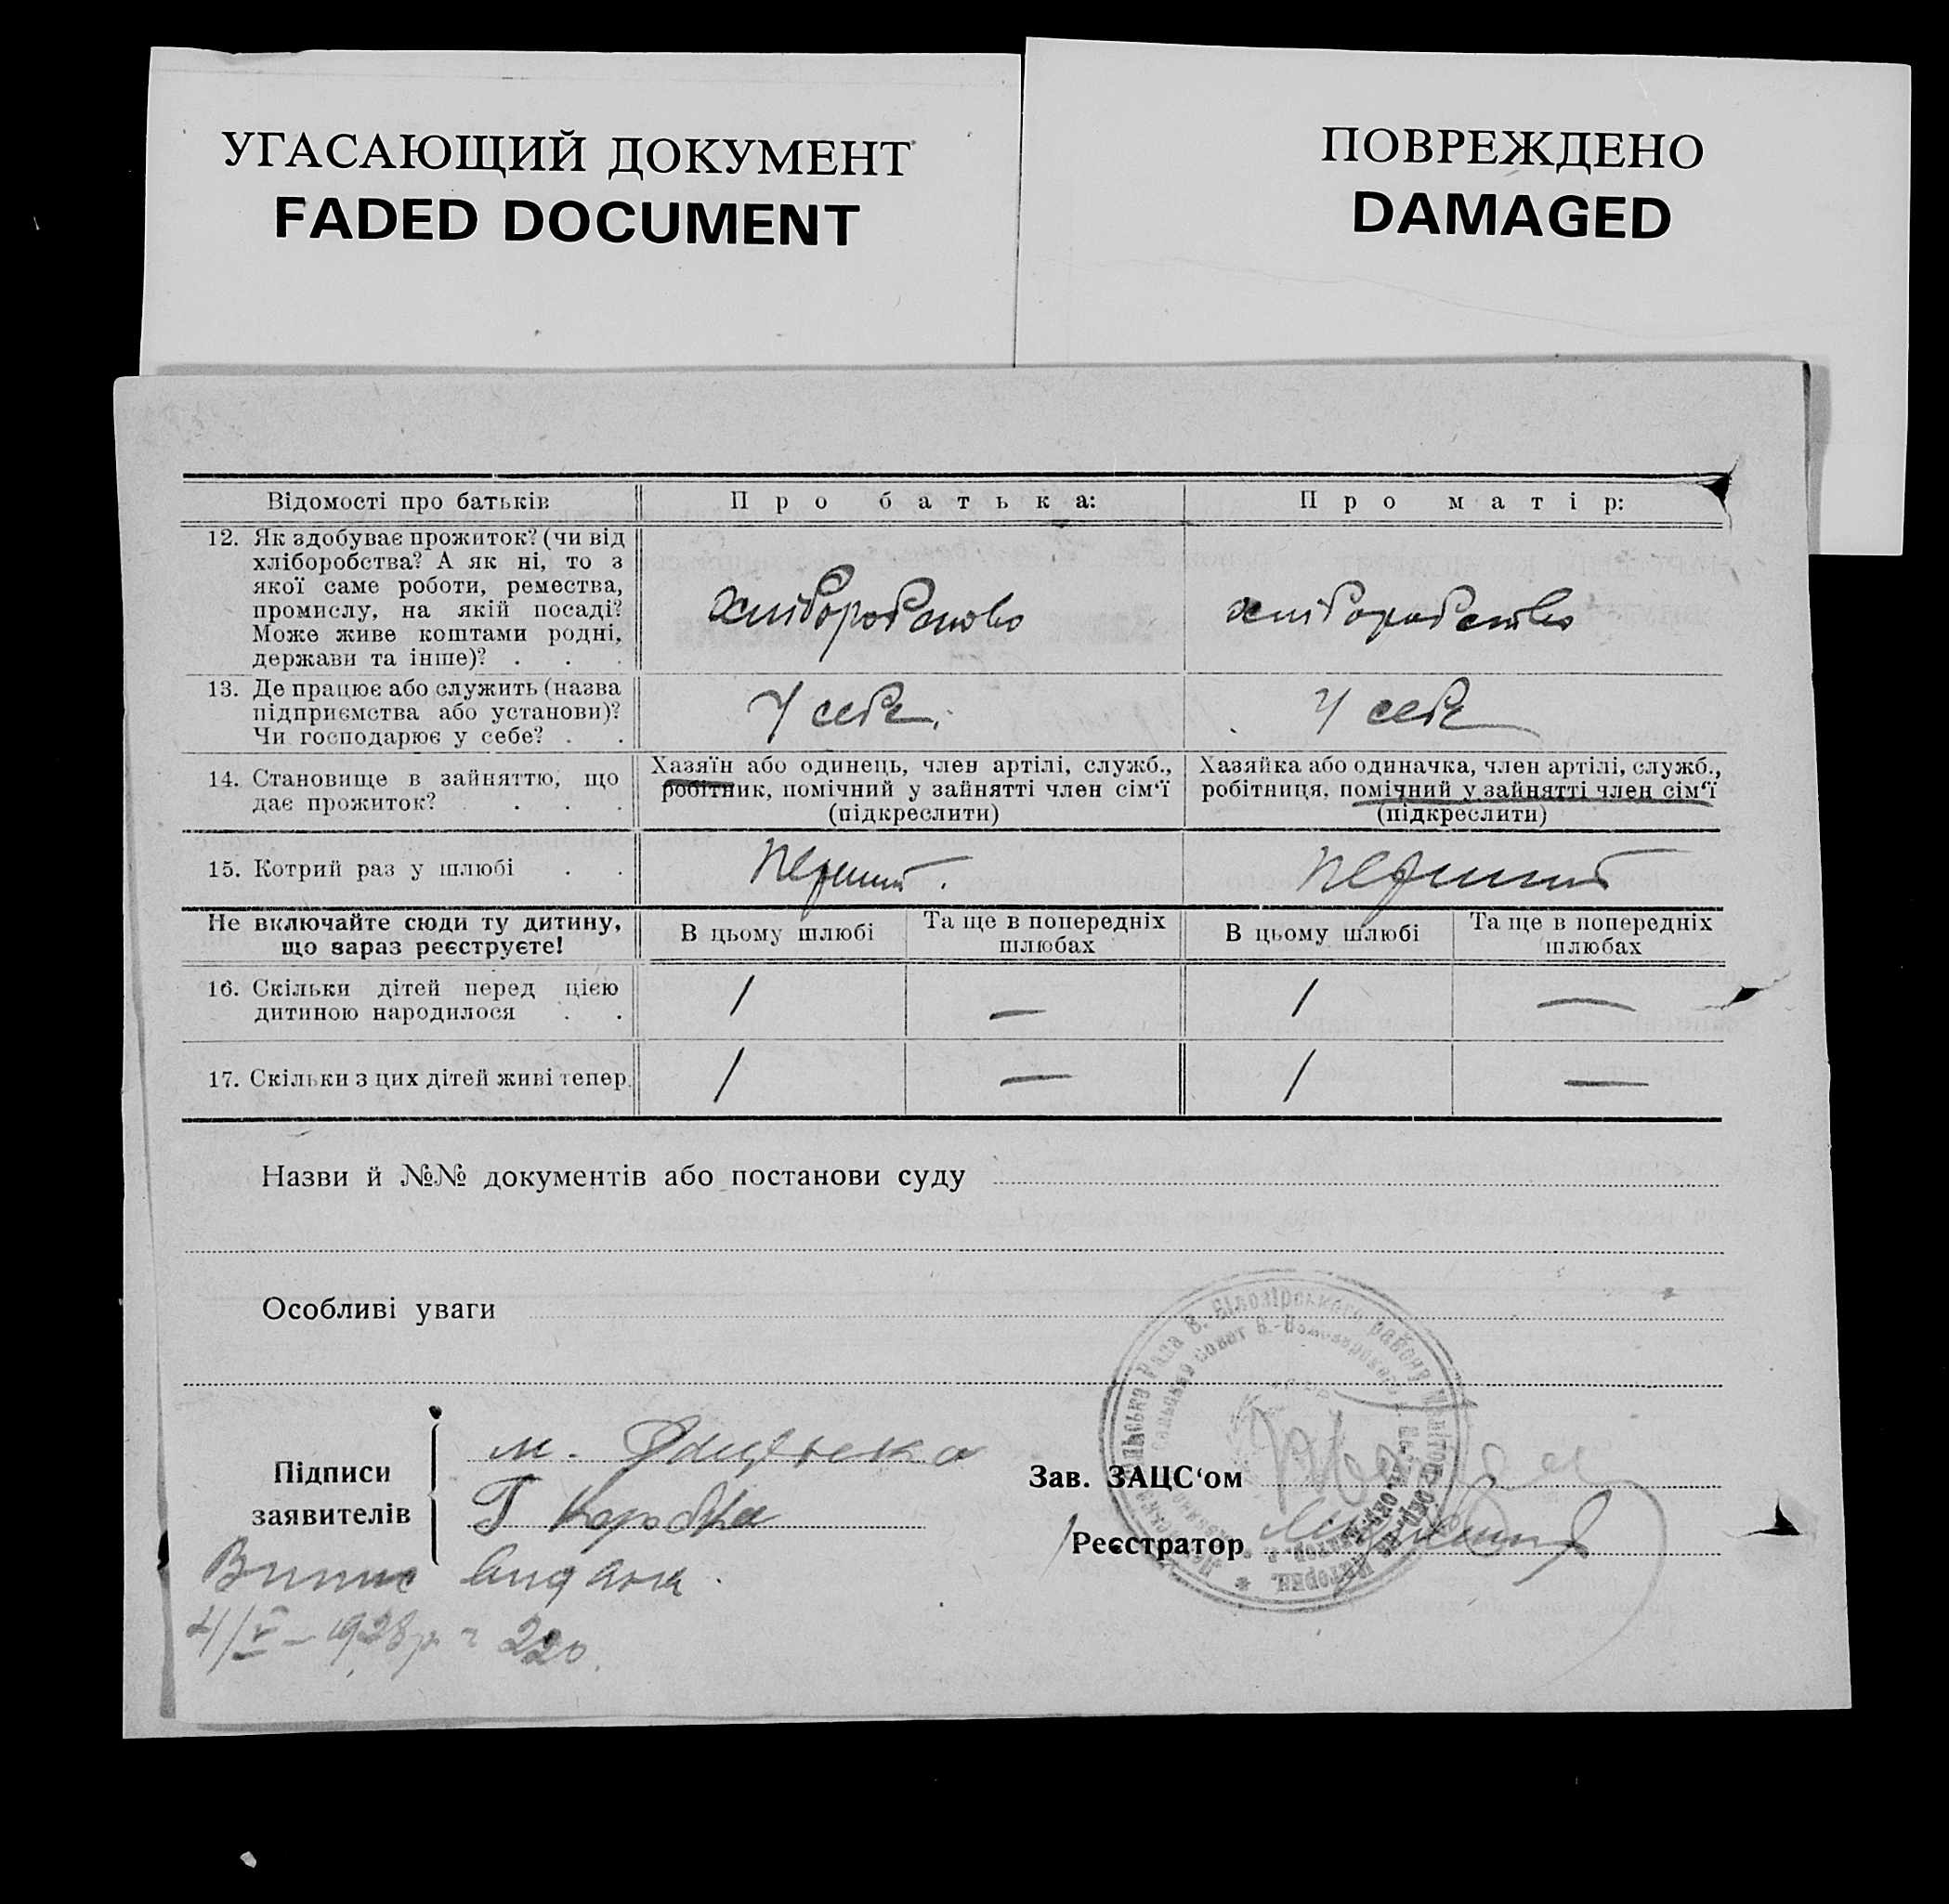 УГАСАЮЩИЙ ДОКУМЕНТ
FADED DOCUMENT
ПОВРЕЖДЕНО
DAMAGED
Відомості про батьків
Про батька:
Про матір:
12. Як здобуває прожиток? (чи від
хліборобства? А як ні, то з
якої саме роботи, ремества,
промислу, на якій посаді?
Може живе коштами родні,
держави та інше)? . . .
хліборобство
хліборобство
13. Де працює або служить (назва
підприємства або установи)?
Чи господарює у себе? . .
У себе
У себе
14. Становище в зайняттю, що
дає прожиток? . . .
Хазяїн або одинець, член артілі, служб.,
робітник, помічний у зайнятті член сім'ї
(підкреслити)
Хазяйка або одиначка, член артілі, служб.,
робітниця, помічний у зайнятті член сім'ї
(підкреслити)
15. Котрий раз у шлюбі . .
перший.
перший
Не включайте сюди ту дитину,
що зараз реєструєте!
В цьому шлюбі
Та ще в попередніх
шлюбах
В цьому шлюбі
Та ще в попередніх
шлюбах
16. Скільки дітей перед цією
дитиною народилося . .
1
—
1
—
17. Скільки з цих дітей живі тепер.
1
—
1
—
Назви й №№ документів або постанови суду
Особливі уваги
Підписи
заявителів
м.
Г Коробка
Зав. ЗАЦС'ом
Реєстратор
Рада В. Білозірського району
Випис видана.
4/V – 1928 р. 220.